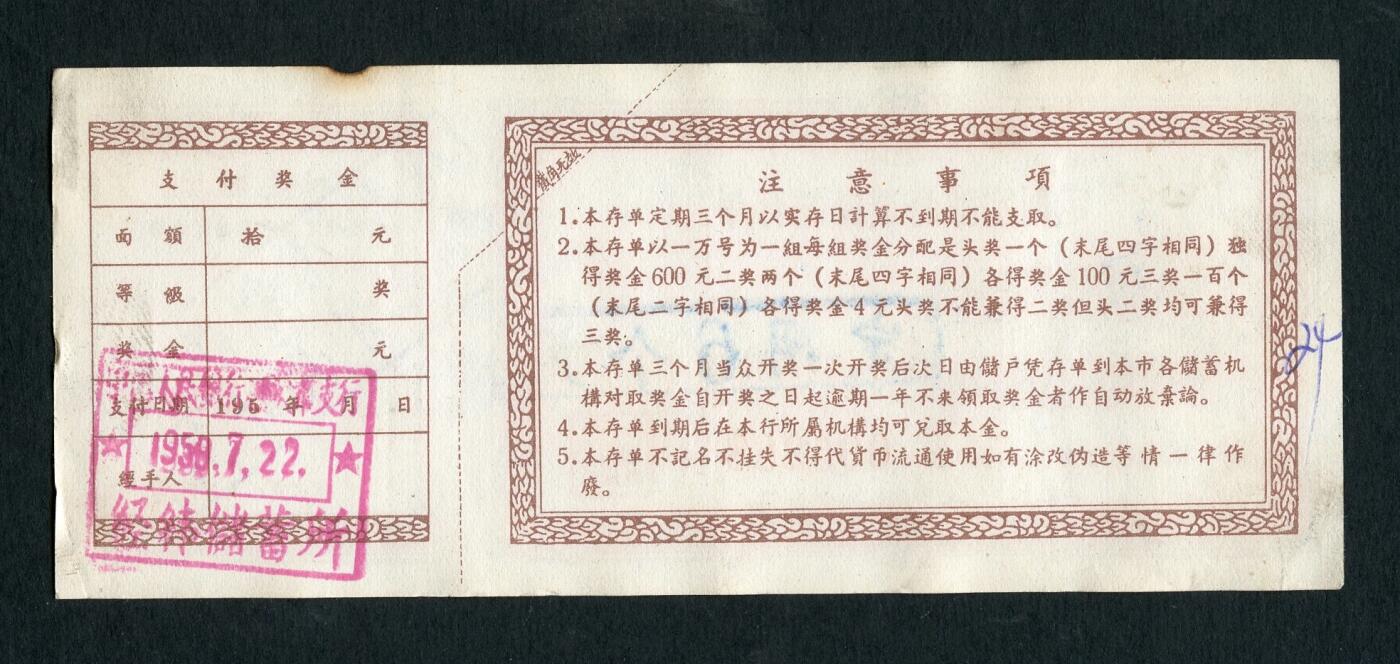 支付奖金
面額 拾 元
等級 奖
奖金 元
支付日期 195 年 月 日
經手人
人民銀行 支行
1958.7.22.
経緯儲蓄所
截角无效
注意事項
1.本存单定期三个月以实存日計算不到期不能支取。
2.本存单以一万号为一組每組奖金分配是头奖一个（末尾四字相同）独
得奖金600元二奖两个（末尾四字相同）各得奖金100元三奖一百个
（末尾二字相同）各得奖金4元头奖不能兼得二奖但头二奖均可兼得
三奖。
3.本存单三个月当众开奖一次开奖后次日由儲戶凭存单到本市各儲蓄机
構对取奖金自开奖之日起逾期一年不来領取奖金者作自动放棄論。
4.本存单到期后在本行所屬机構均可兑取本金。
5.本存单不記名不挂失不得代貨币流通使用如有涂改伪造等情一律作
廢。
24